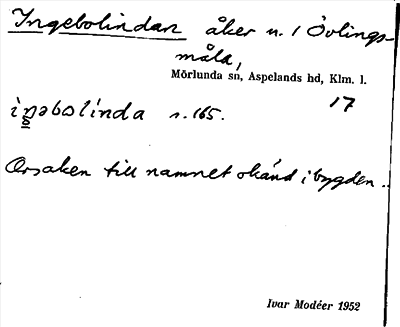 Ingebolindan åker n. 1 Övlings-
måla,
Mörlunda sn, Aspelands hd, Klm. l.
17
s. 165.
Orsaken till namnet okänd i bygden.
Ivar Modéer 1952